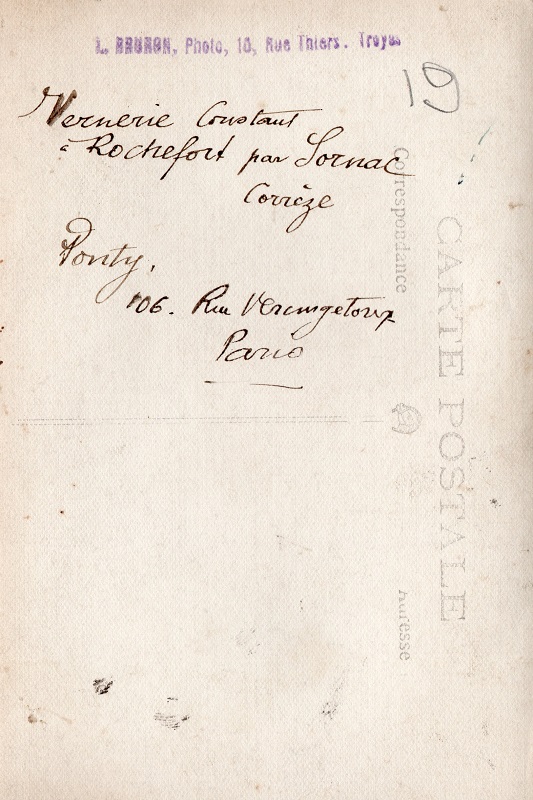 L. BRURON, Photo, 18, Rue Thiers. Troyes
19
Vernerie Constant
à Rochefort par Sornac
Corrèze
Ponty,
106. Rue Vercingetorix
Paris
CARTE POSTALE
Correspondance
Adresse